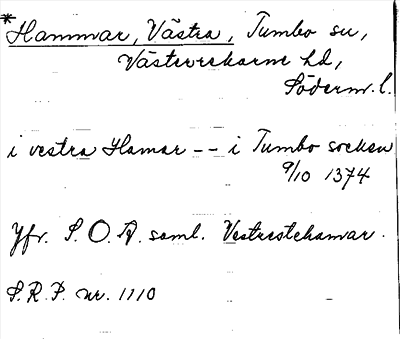 *Hammar, Västra, Tumbo sn,
Västerrekarne hd,
Söderm. l.
i vestra Hamar -- i Tumbo socken
9/10 1374
Jfr. S. O. A. saml. Vestrstehamar.
S.R.P. nr. 1110